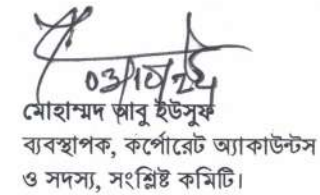 03/10/24
মোহাম্মদ আবু ইউসুফ
ব্যবস্থাপক, কর্পোরেট অ্যাকাউন্টস
ও সদস্য, সংশ্লিষ্ট কমিটি।